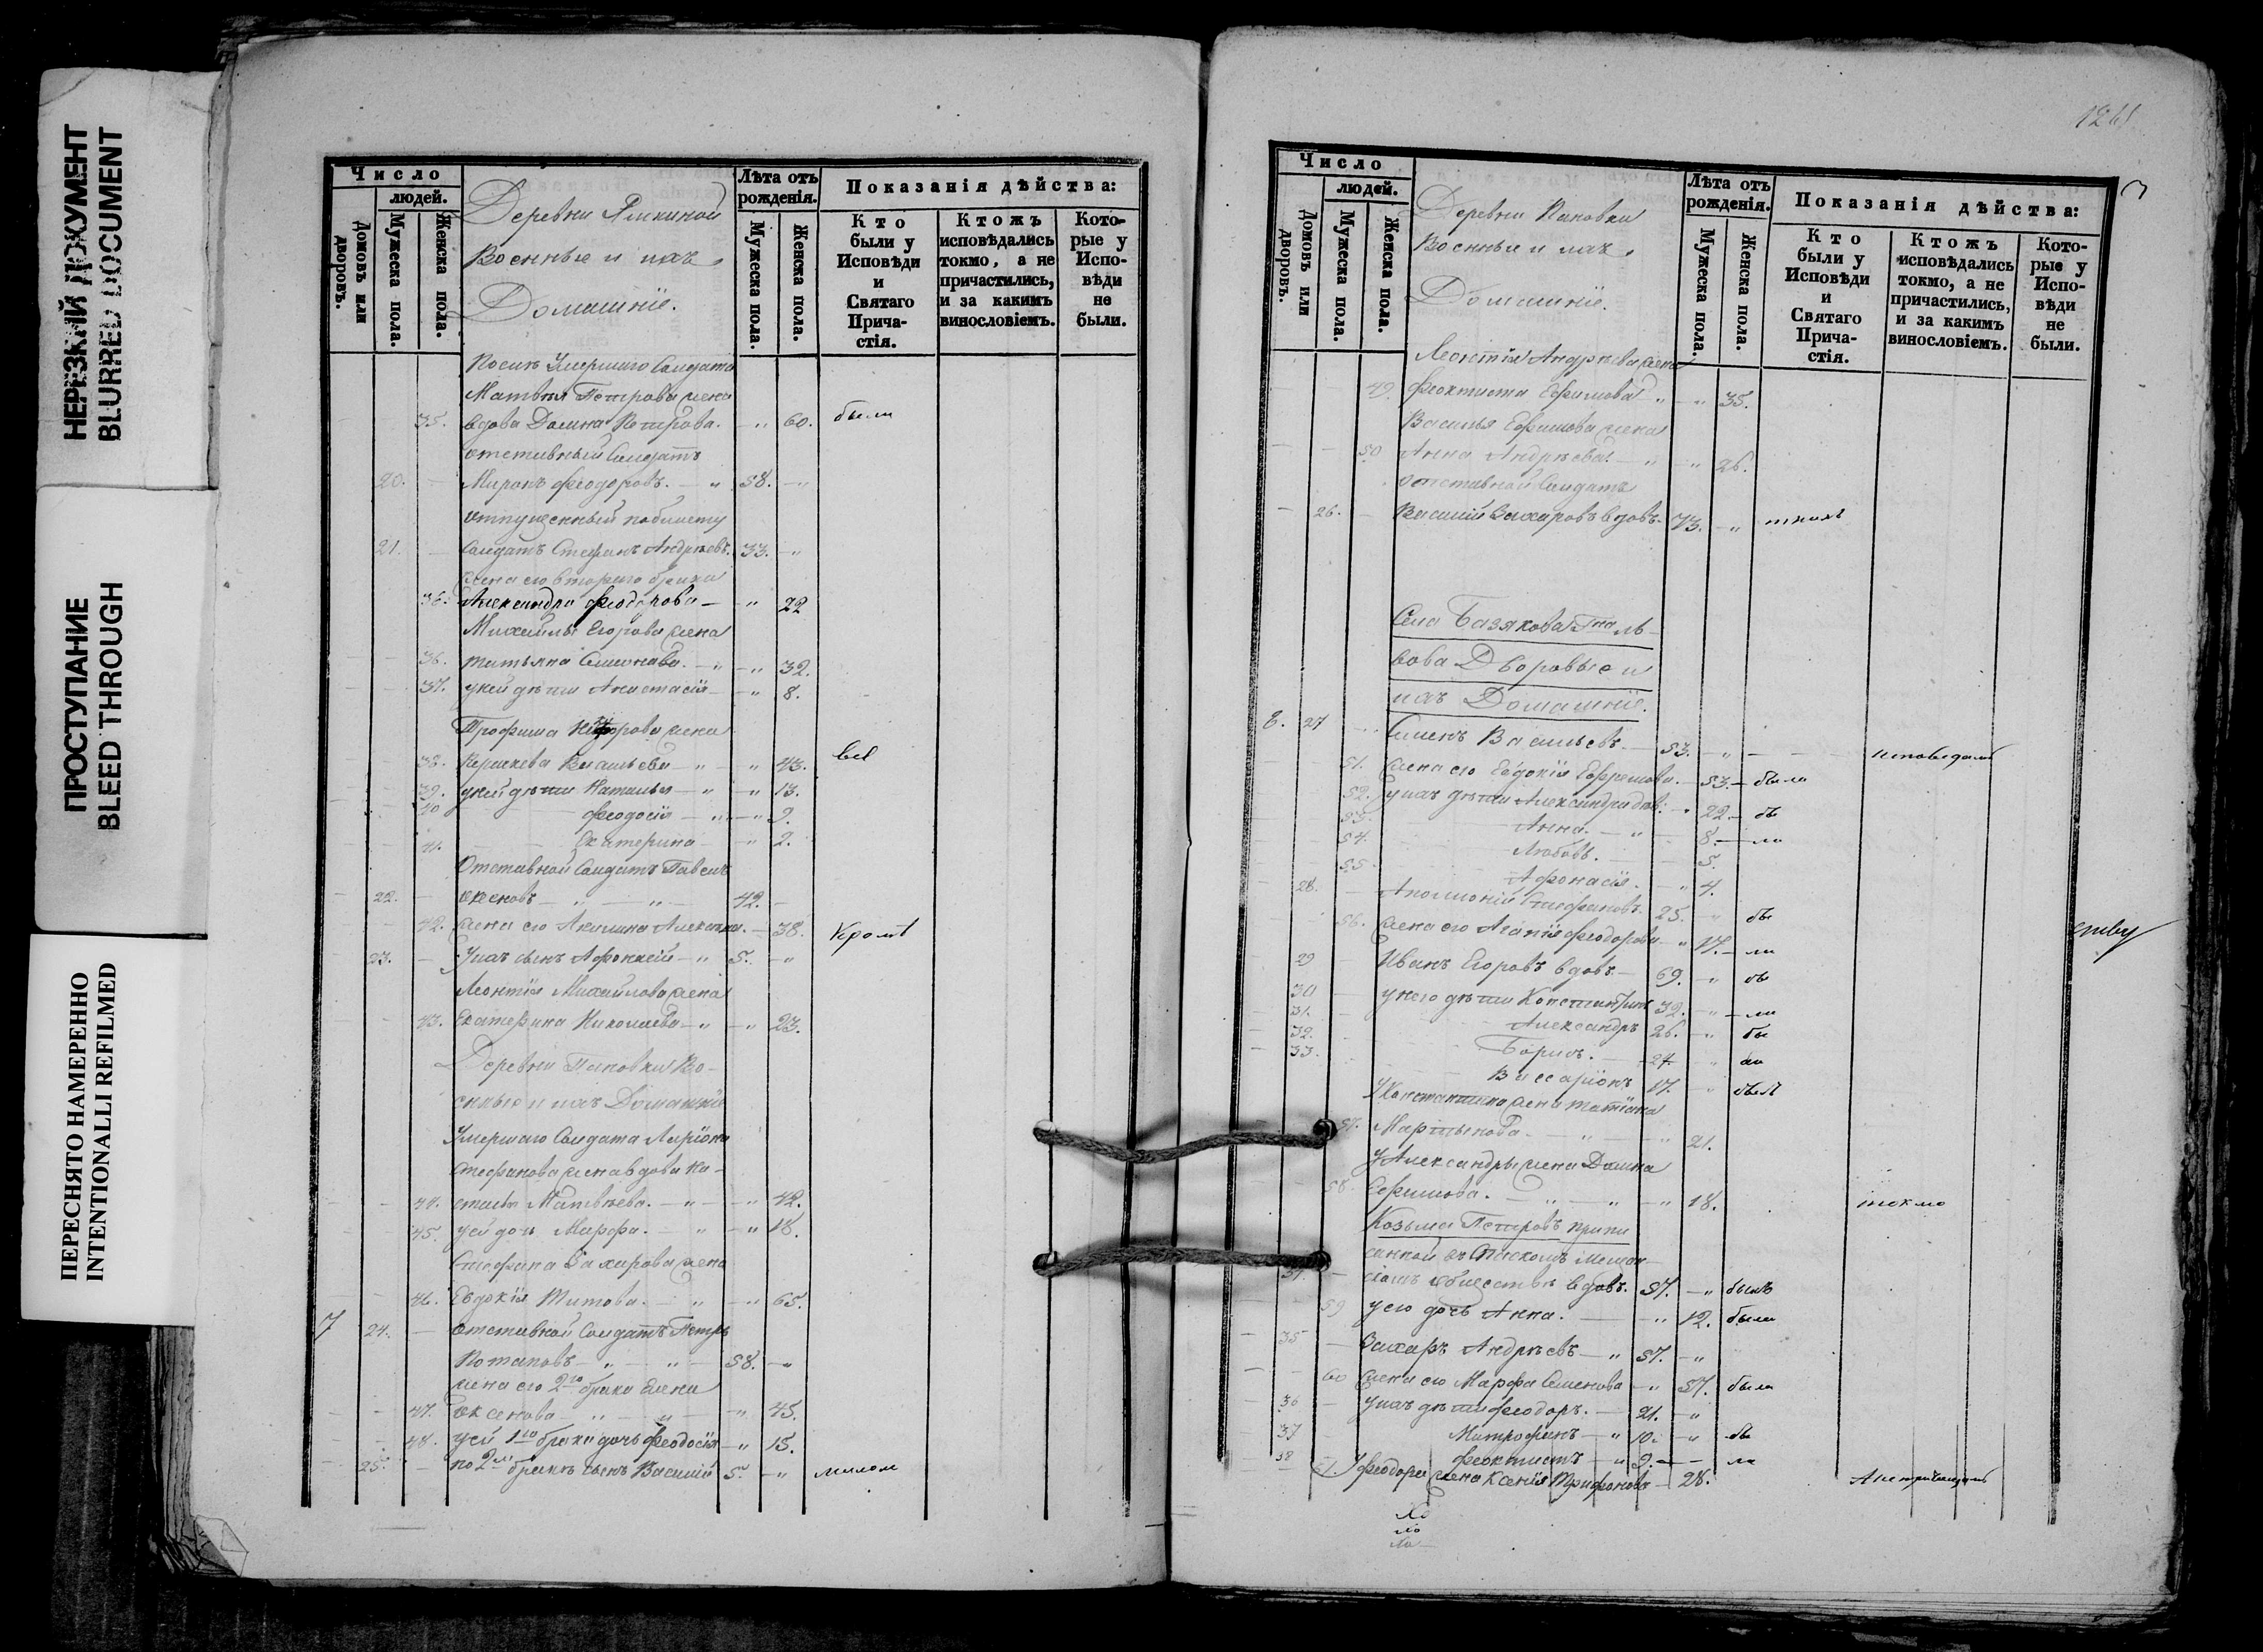 НЕРЕЗКИЙ ДОКУМЕНТ
BLURRED DOCUMENT
ПРОСТУПАНИЕ
BLEED THROUGH
ПЕРЕСНЯТО НАМЕРЕННО
INTENTIONALLI REFILMED
Число
людей.
Домовъ или дворовъ.
Мужеска пола.
Женска пола.
Деревни
Военные и ихъ
Домашніе.
Лѣта отъ рожденія.
Мужеска пола.
Женска пола.
Показанія дѣйства:
Кто были у Исповѣди и Святаго Прича-стія.
Ктожъ исповѣдались токмо, а не причастились, и за какимъ винословіемъ.
Кото-рые у Испо-вѣди не были.
Умершаго Солдата
Матвѣя Петрова жена
35. вдова Домна Петрова. 60. были
отставный Солдатъ
20. Миронъ Феодоровъ. 58.
отпущенный по билету
21. Солдатъ Стефанъ Андреевъ. 33.
жена его втораго брака
36. Александра Феодорова 22
Михайлы Егорова жена
36. Татьяна Семенова. 32.
37. у ней дѣти Анастасія 8.
Трофима жена
38. Васильева 43. всѣ
39. у ней дѣти Наталья 13.
40 Феодосія 9.
41. Екатерина 2.
Отставной Солдатъ Павелъ
22. 42.
42. жена его Акилина 38. Кромѣ
23. У нихъ сынъ 5.
Леонтія Михайлова жена
43. Екатерина Николаева 23.
Деревни Пановки Во-
енные и ихъ Домашніе
Умершаго Солдата Ларіона
Стефанова жена вдова На-
44. сталья Матвѣева. 42.
45. у ей дочь Марфа. 18.
Стефана Захарова жена
46. Евдокія Титова. 65.
7 24. отставной Солдатъ Петръ
Потаповъ 58.
жена его 2го брака Елена
47. Оксенова 45.
48. у ей 1го брака дочь Феодосія 15.
25. по 2мъ бракѣ сынъ Василій 5.
Число
людей.
Домовъ или дворовъ.
Мужеска пола.
Женска пола.
Деревни Пановки
Военные и ихъ
Домашніе.
Лѣта отъ рожденія.
Мужеска пола.
Женска пола.
Показанія дѣйства:
Кто были у Исповѣди и Святаго Прича-стія.
Ктожъ исповѣдались токмо, а не причастились, и за какимъ винословіемъ.
Кото-рые у Испо-вѣди не были.
Леонтія Андреева жена
49. Феоктиста Ефимова 35.
Василья Ефимова жена
50 Анна Андреева 26.
отставной Солдатъ
26. Василій Захаровъ вдовъ 73.
Села Базякова
Дворовые и
ихъ Домашніе.
8. 27 Семенъ Васильевъ 53.
51. жена его Евдокія Ефремова. 53. была
52. у нихъ дѣти Александра дѣв. 22. бы
53. Анна. 8. ла
54. Любовь. 5.
55. Афонасія. 4.
28. Аполлоній Стефановъ 25. бы
56. жена его Агапія Феодорова 17. ли
29 Иванъ Егоровъ вдовъ 69. бы
30 у него дѣти Константинъ 32. ли
31. Александръ 26. бы
32. Борисъ. 24 ли
33. Виссаріонъ 17. былъ
У Константина жена Татіана
57. Мартынова. 21.
У Александры жена Домна
58. Ефимова. 18. токмо
Козьма Петровъ припи-
санной въ Спаскомъ мещан-
скомъ обществѣ вдовъ. 57. былъ
59 у его дочь Анна. 12. была
35 Захаръ Андреевъ 57.
60 жена его Марфа Семенова 57. была
36 у нихъ дѣти Феодоръ. 21.
37 Митрофанъ 10. бы
38 Феоктистъ 9. ли
61. У Феодора жена Ксенія Трифонова 28.